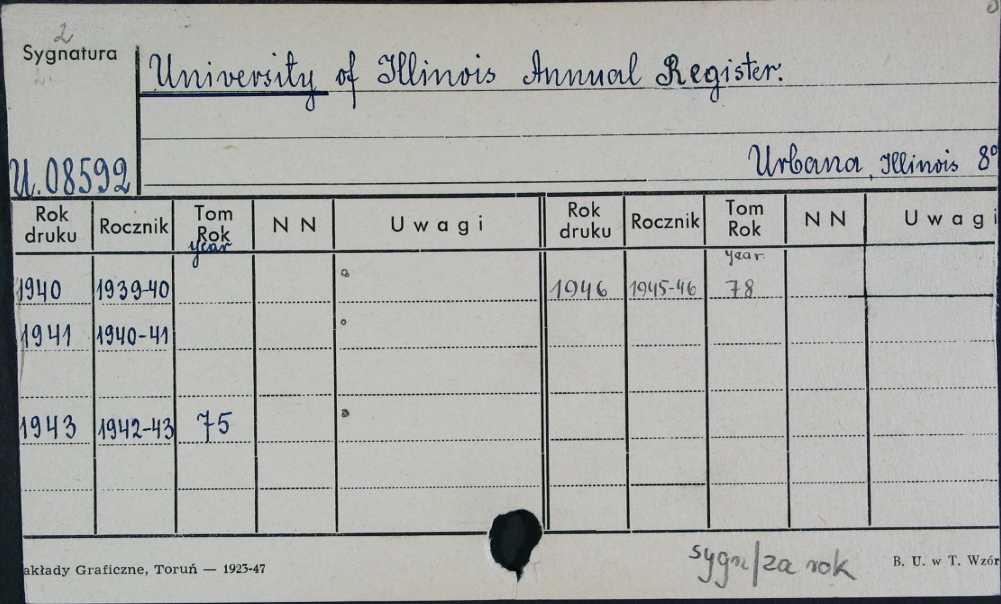 2
Sygnatura
University of Illinois Annual Register.
Urbana, Illinois 8°
U.08592
Rok druku Rocznik Tom Rok year N N Uwagi Rok druku Rocznik Tom Rok year N N Uwagi
1940 1939-40 1946 1945-46 78
1941 1940-41
1943 1942-43 75
akłady Graficzne, Toruń — 1923-47 sygn/za rok B. U. w T. Wzór